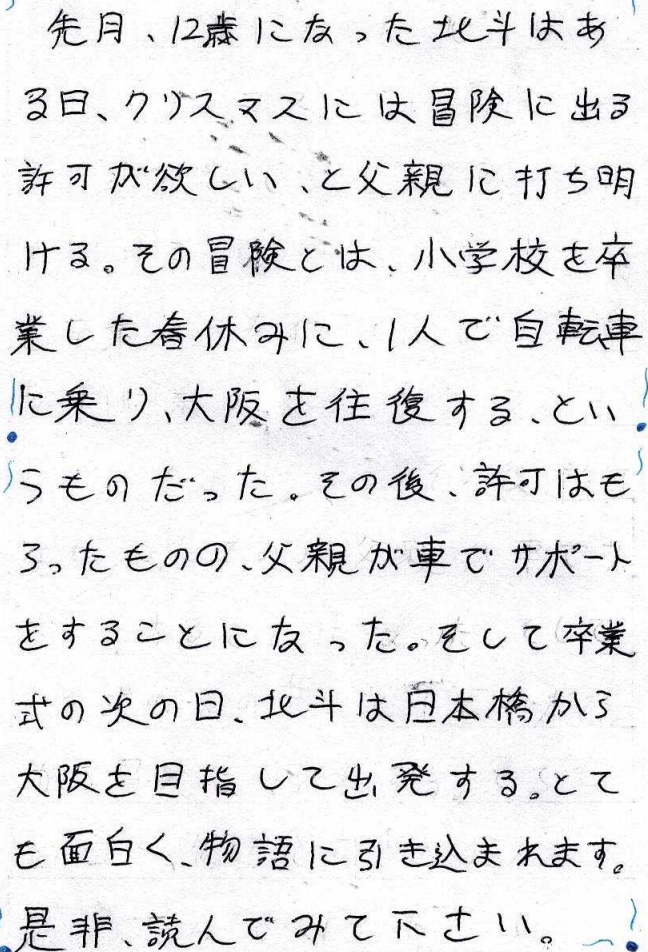 先月、12歳になった北斗はあ
る日、クリスマスには冒険に出る
許可が欲しい、と父親に打ち明
ける。その冒険とは、小学校を卒
業した春休みに、1人で自転車
に乗り、大阪を往復する、とい
うものだった。その後、許可はも
らったものの、父親が車でサポート
をすることになった。そして卒業
式の次の日、北斗は日本橋から
大阪を目指して出発する。とて
も面白く、物語に引き込まれます。
是非、読んでみて下さい。